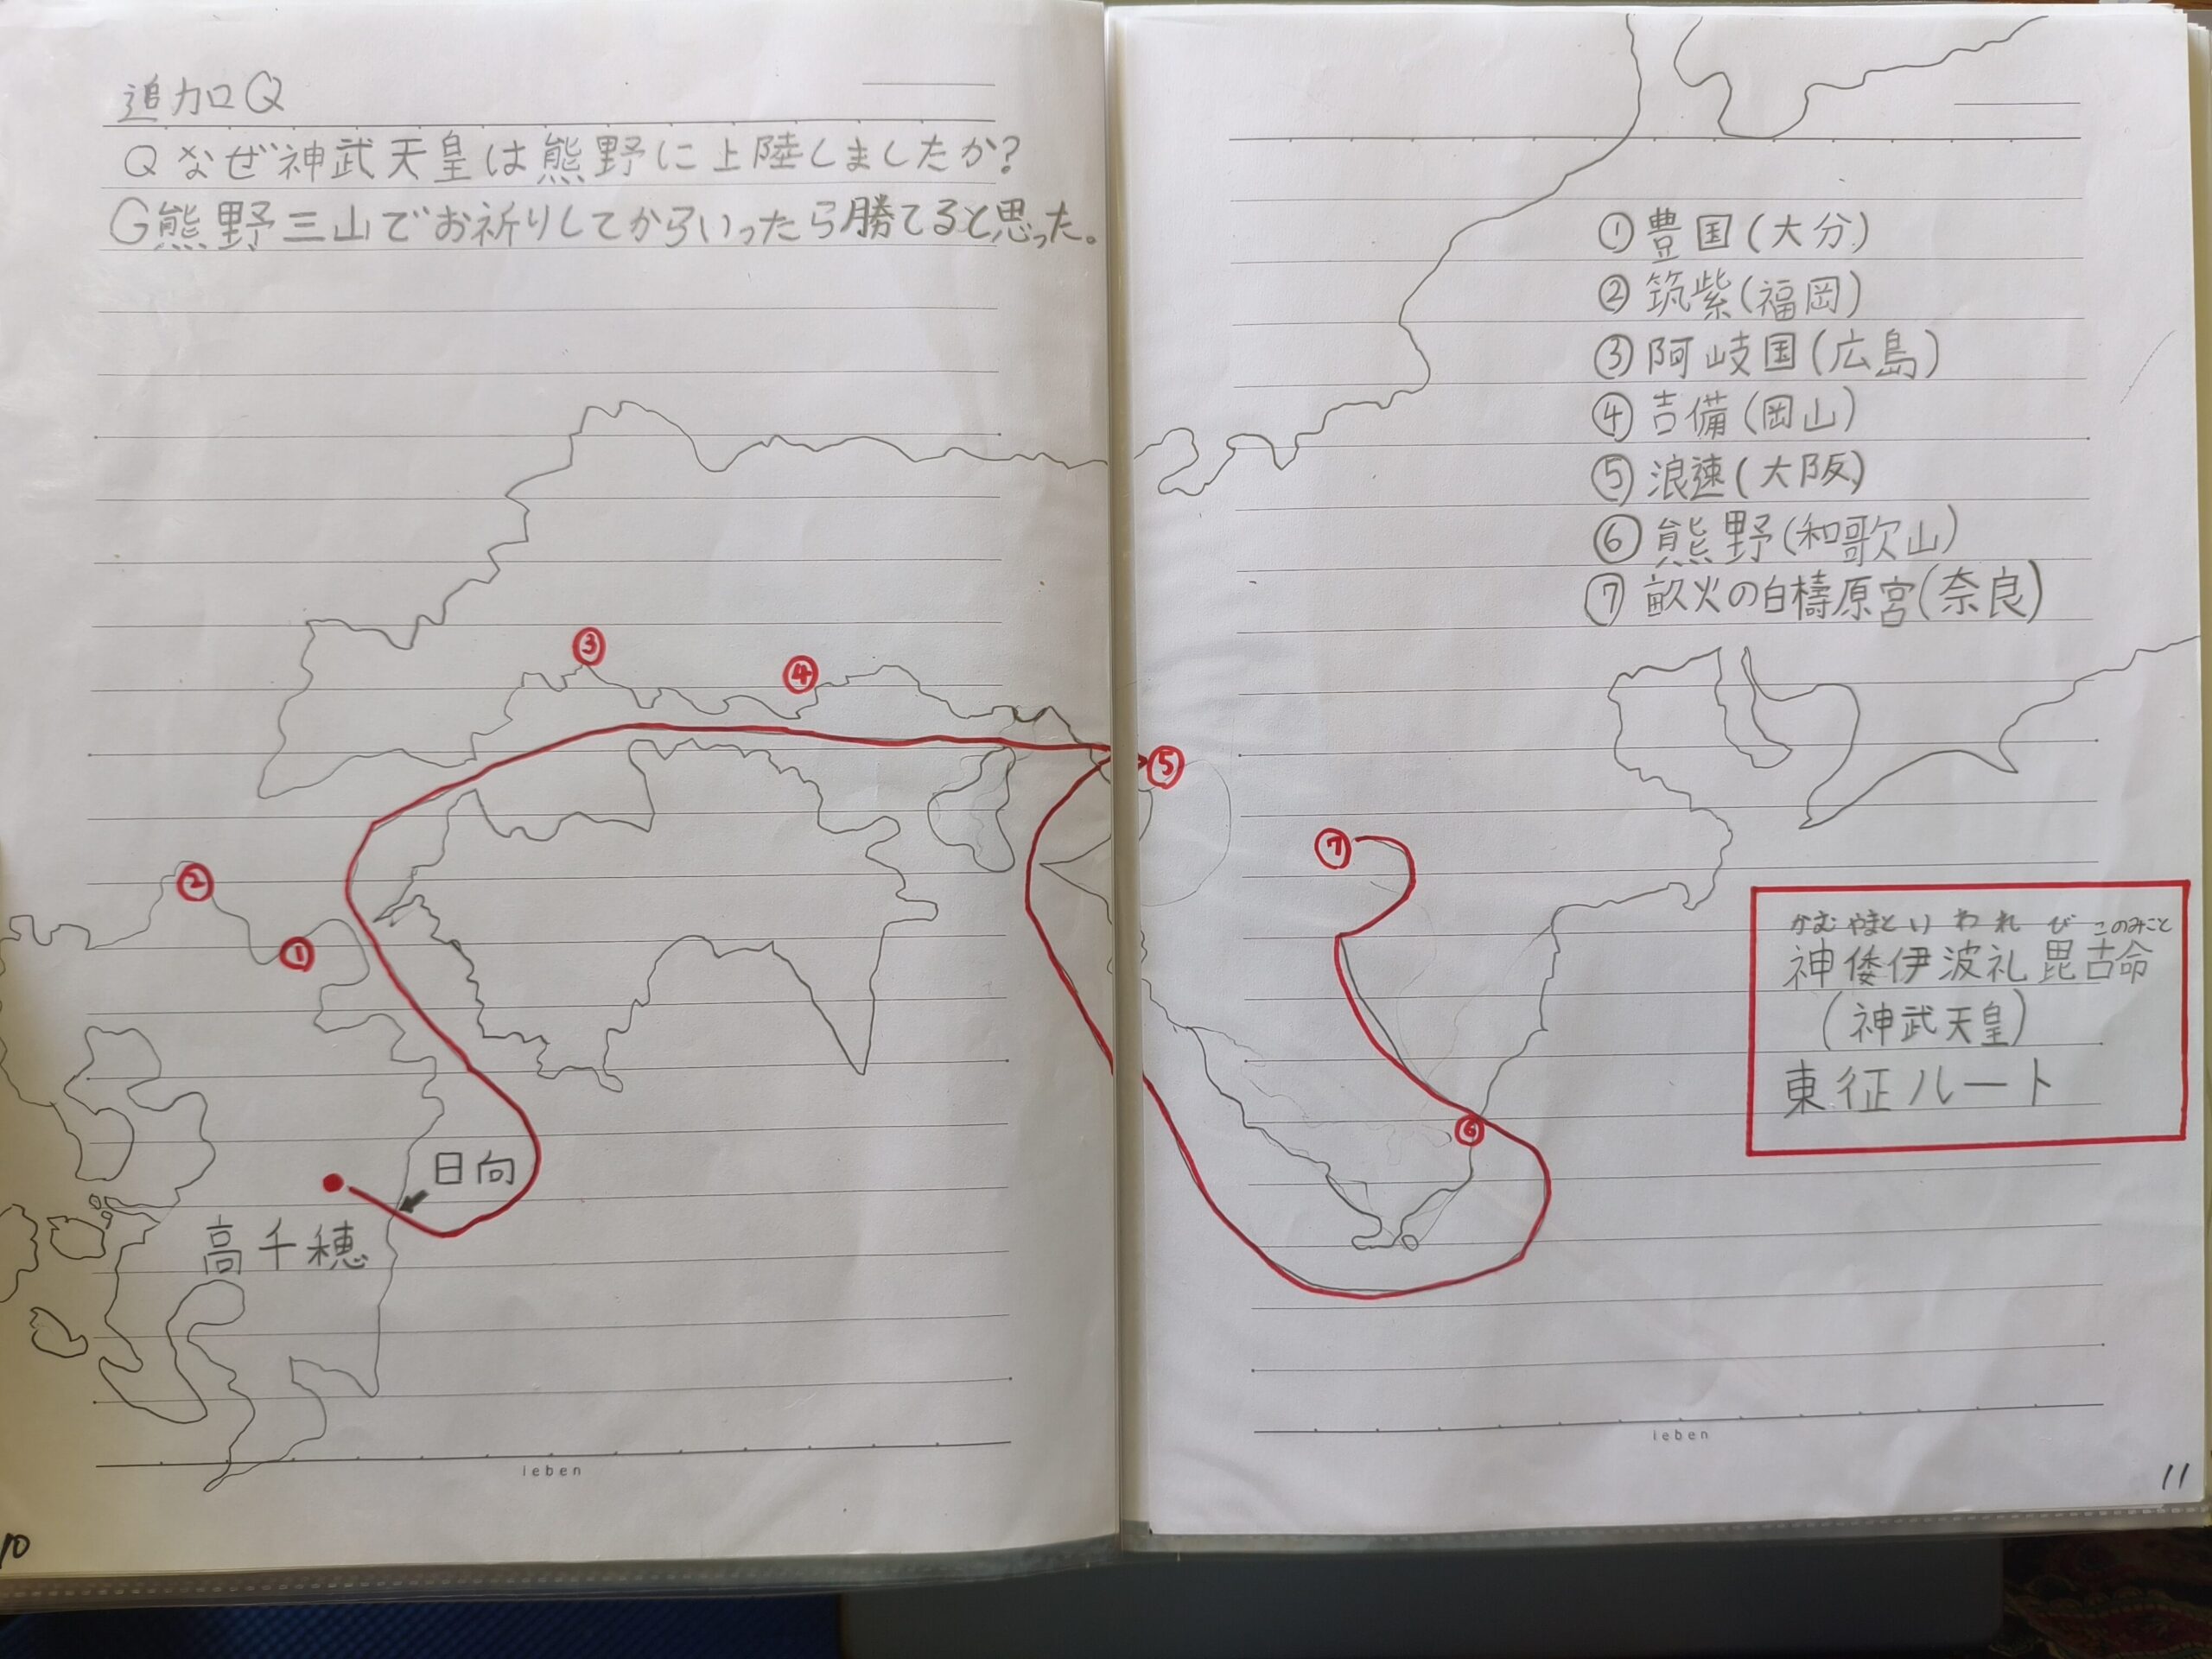 追加Q
Qなぜ神武天皇は熊野に上陸しましたか?
G熊野三山でお祈りしてからいったら勝てると思った。
③
④
②
①
日向
高千穂
leben
10
①豊国(大分)
②筑紫(福岡)
③阿岐国(広島)
④吉備(岡山)
⑤浪速(大阪)
⑥熊野(和歌山)
⑦畝火の白檮原宮(奈良)
⑤
⑦
かむやまといわれびこのみこと
神倭伊波礼毘古命
(神武天皇)
東征ルート
⑥
leben
11